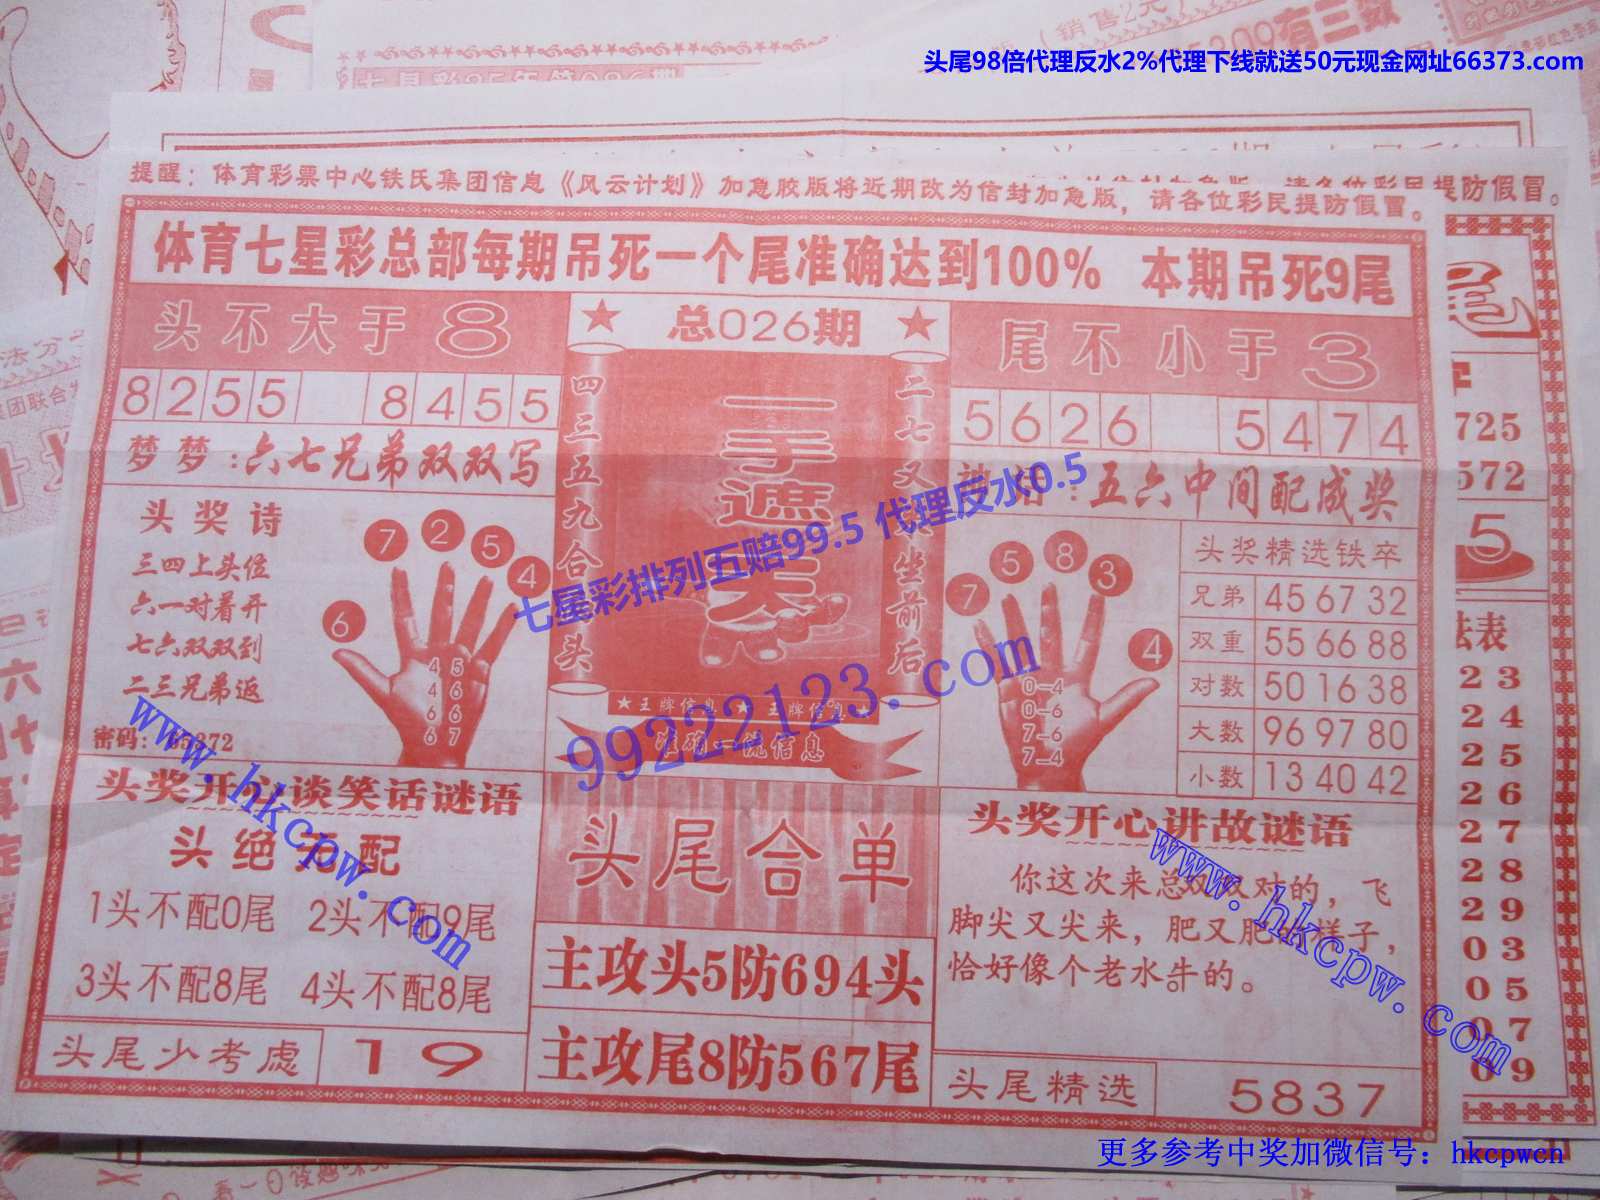 头尾98倍代理反水2%代理下线就送50元现金网址66373.com
提醒：体育彩票中心铁氏集团信息《风云计划》加急胶版将近期改为信封加急版，请各位彩民提防假冒。
体育七星彩总部每期吊死一个尾准确达到100% 本期吊死9尾
头不大于8
总026期
尾不小于3
8255 8455
5626 5474
梦梦：六七兄弟双双写
五六中间配成奖
四三五九合头
一手遮天
二七又
坐前后
七星彩排列五赔99.5 代理反水0.5
头奖诗
三四上头位
六一对着开
七六双双到
二三兄弟返
密码：
7 2 5 4 6
4 5
4 6
6 6
6 7
7 5 8 3 4
0-4
0-6
7-6
7-4
头奖精选铁卒
兄弟 45 67 32
双重 55 66 88
对数 50 16 38
大数 96 97 80
小数 13 40 42
★王牌信息 ★ 王牌信息★
准确一流信息
99222123.com
www.hkcpw.com
头奖开心谈笑话谜语
头绝无配
1头不配0尾 2头不配9尾
3头不配8尾 4头不配8尾
头尾少考虑 19
头尾合单
主攻头5防694头
主攻尾8防567尾
头奖开心讲故谜语
你这次来总双双对的，飞
脚尖又尖来，肥又肥的样子，
恰好像个老水牛的。
www.hkcpw.com
头尾精选 5837
尾
725
572
5
法表
23
24
25
26
27
28
29
03
05
07
09
更多参考中奖加微信号：hkcpwcn